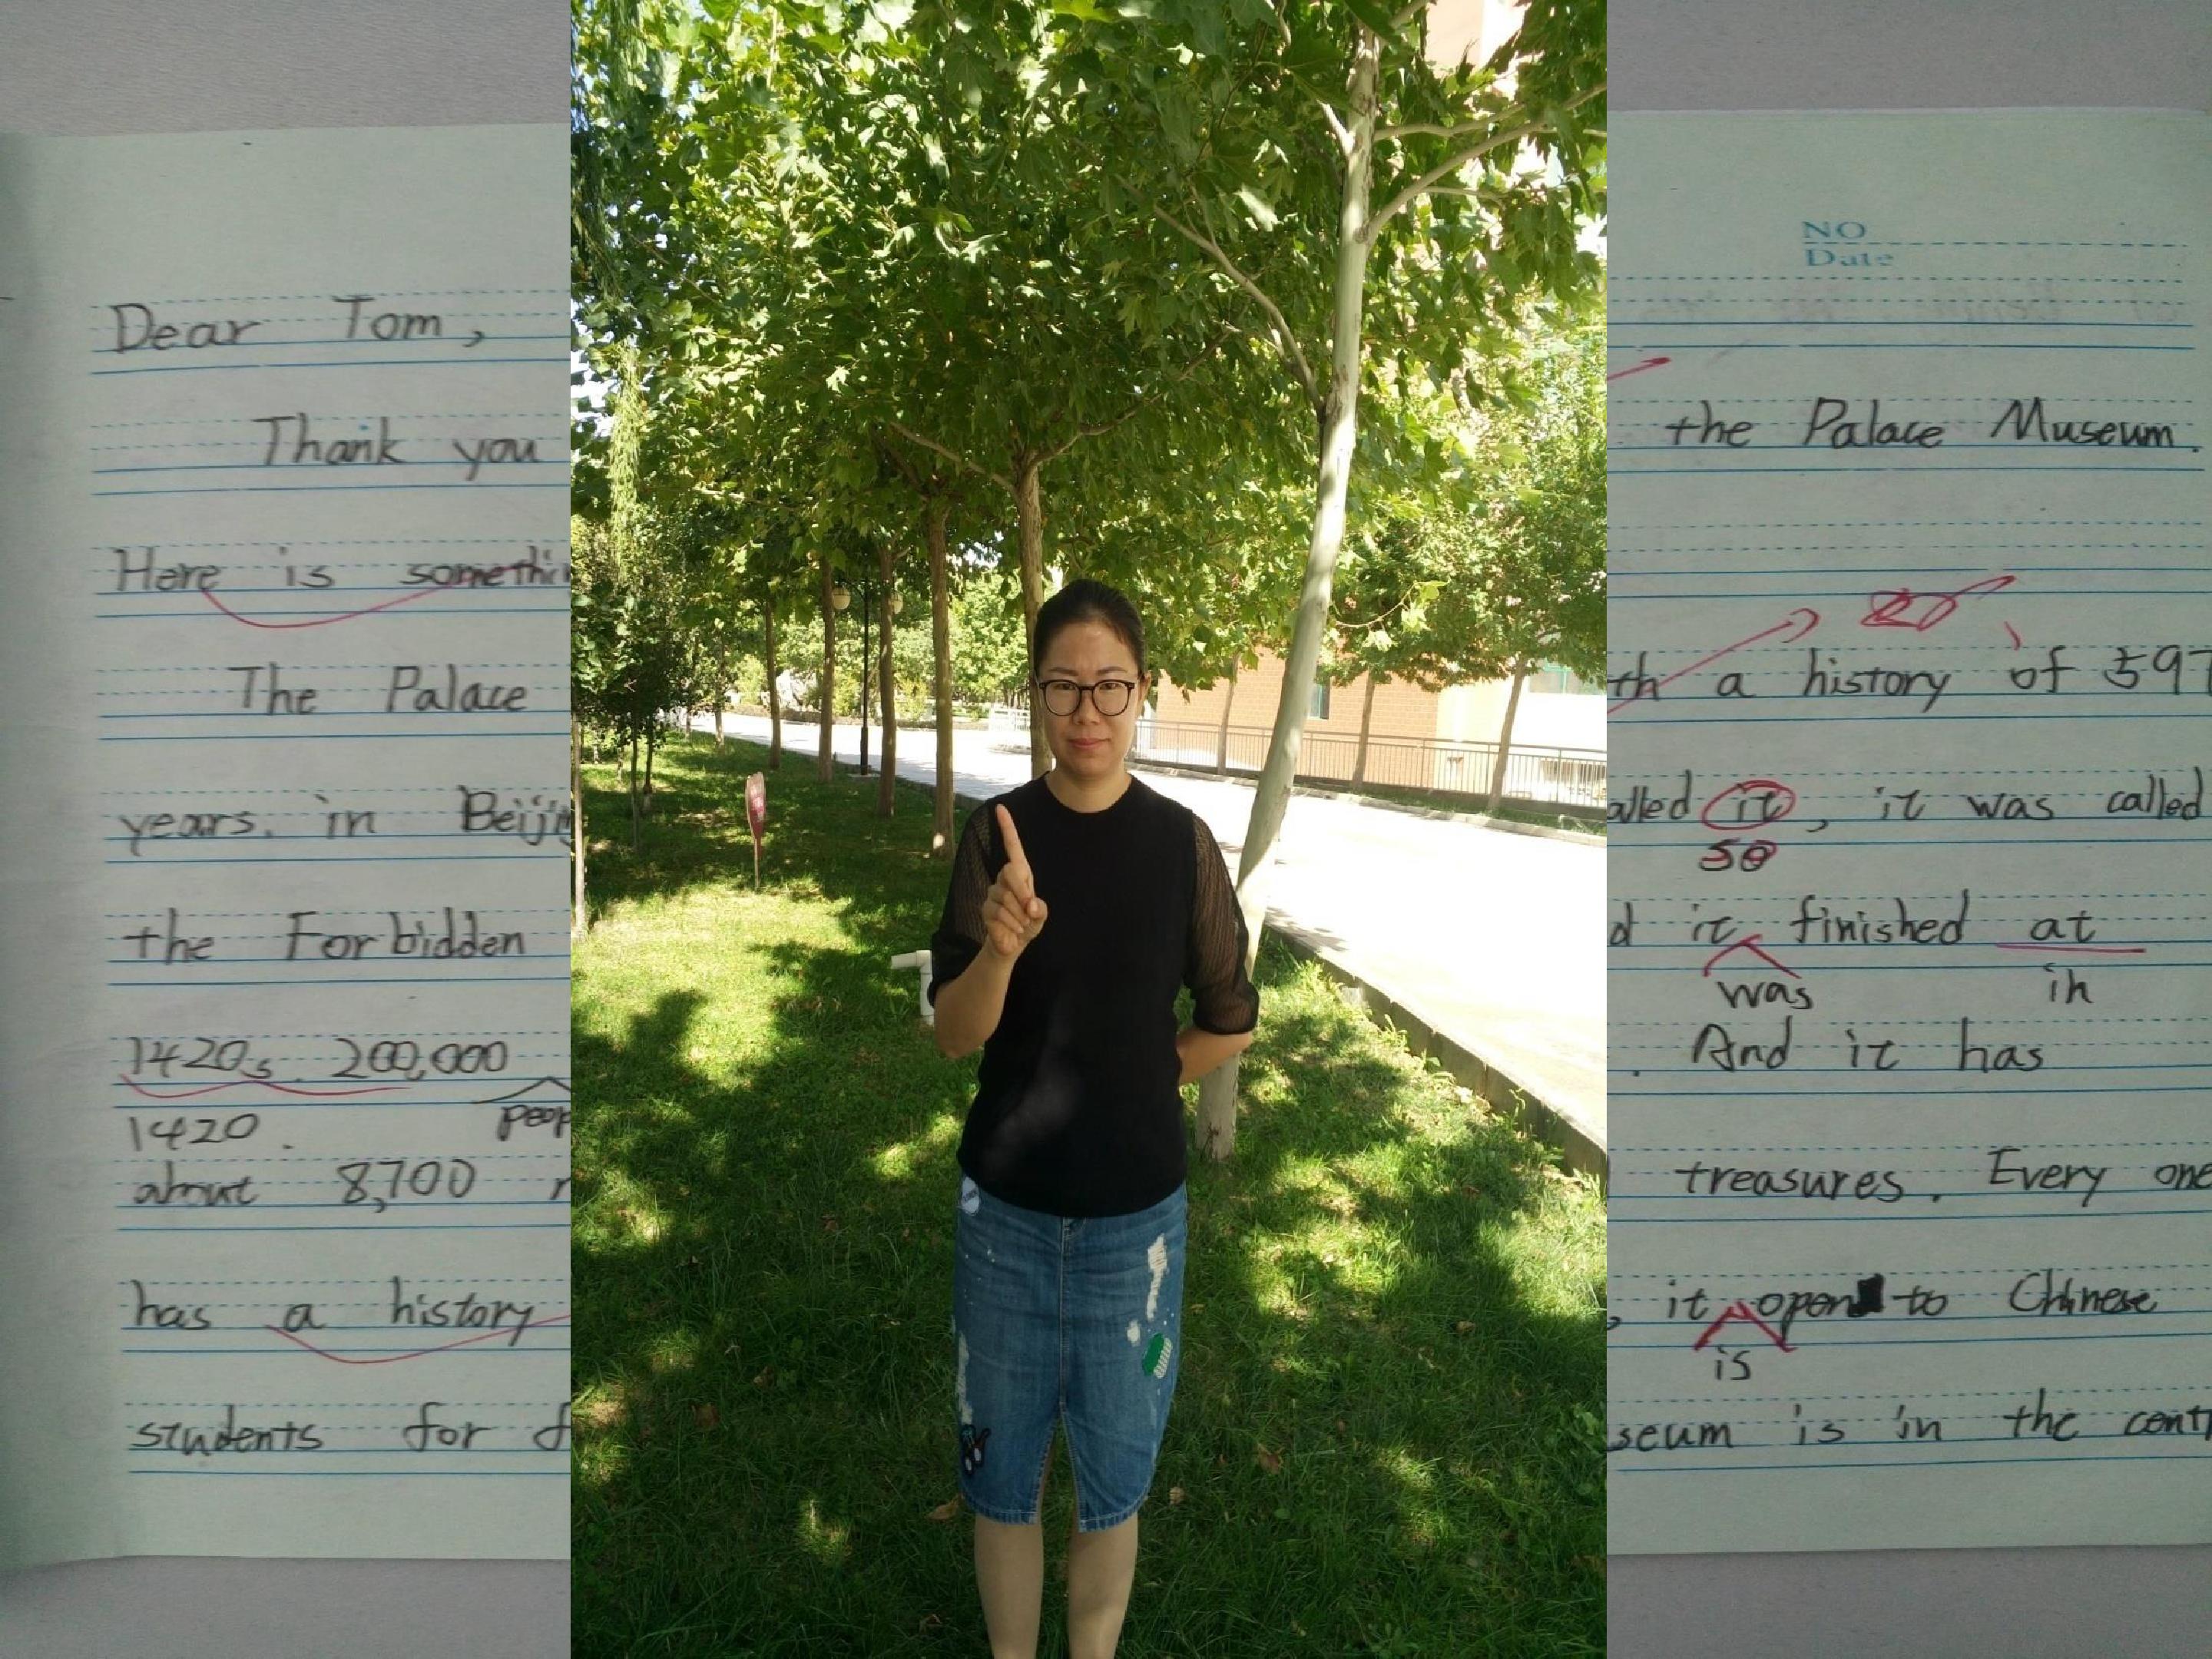 Dear Tom,
Thank you
Here is
The Palace
years. in
the Forbidden
1420s. 200,000
1420.
about 8,700
has a history
students for
NO
Date
the Palace Museum.
a history of 597
it, it was called
so
it finished at
was in
. And it has
treasures. Every one
, it open to Chinese
is
is in the